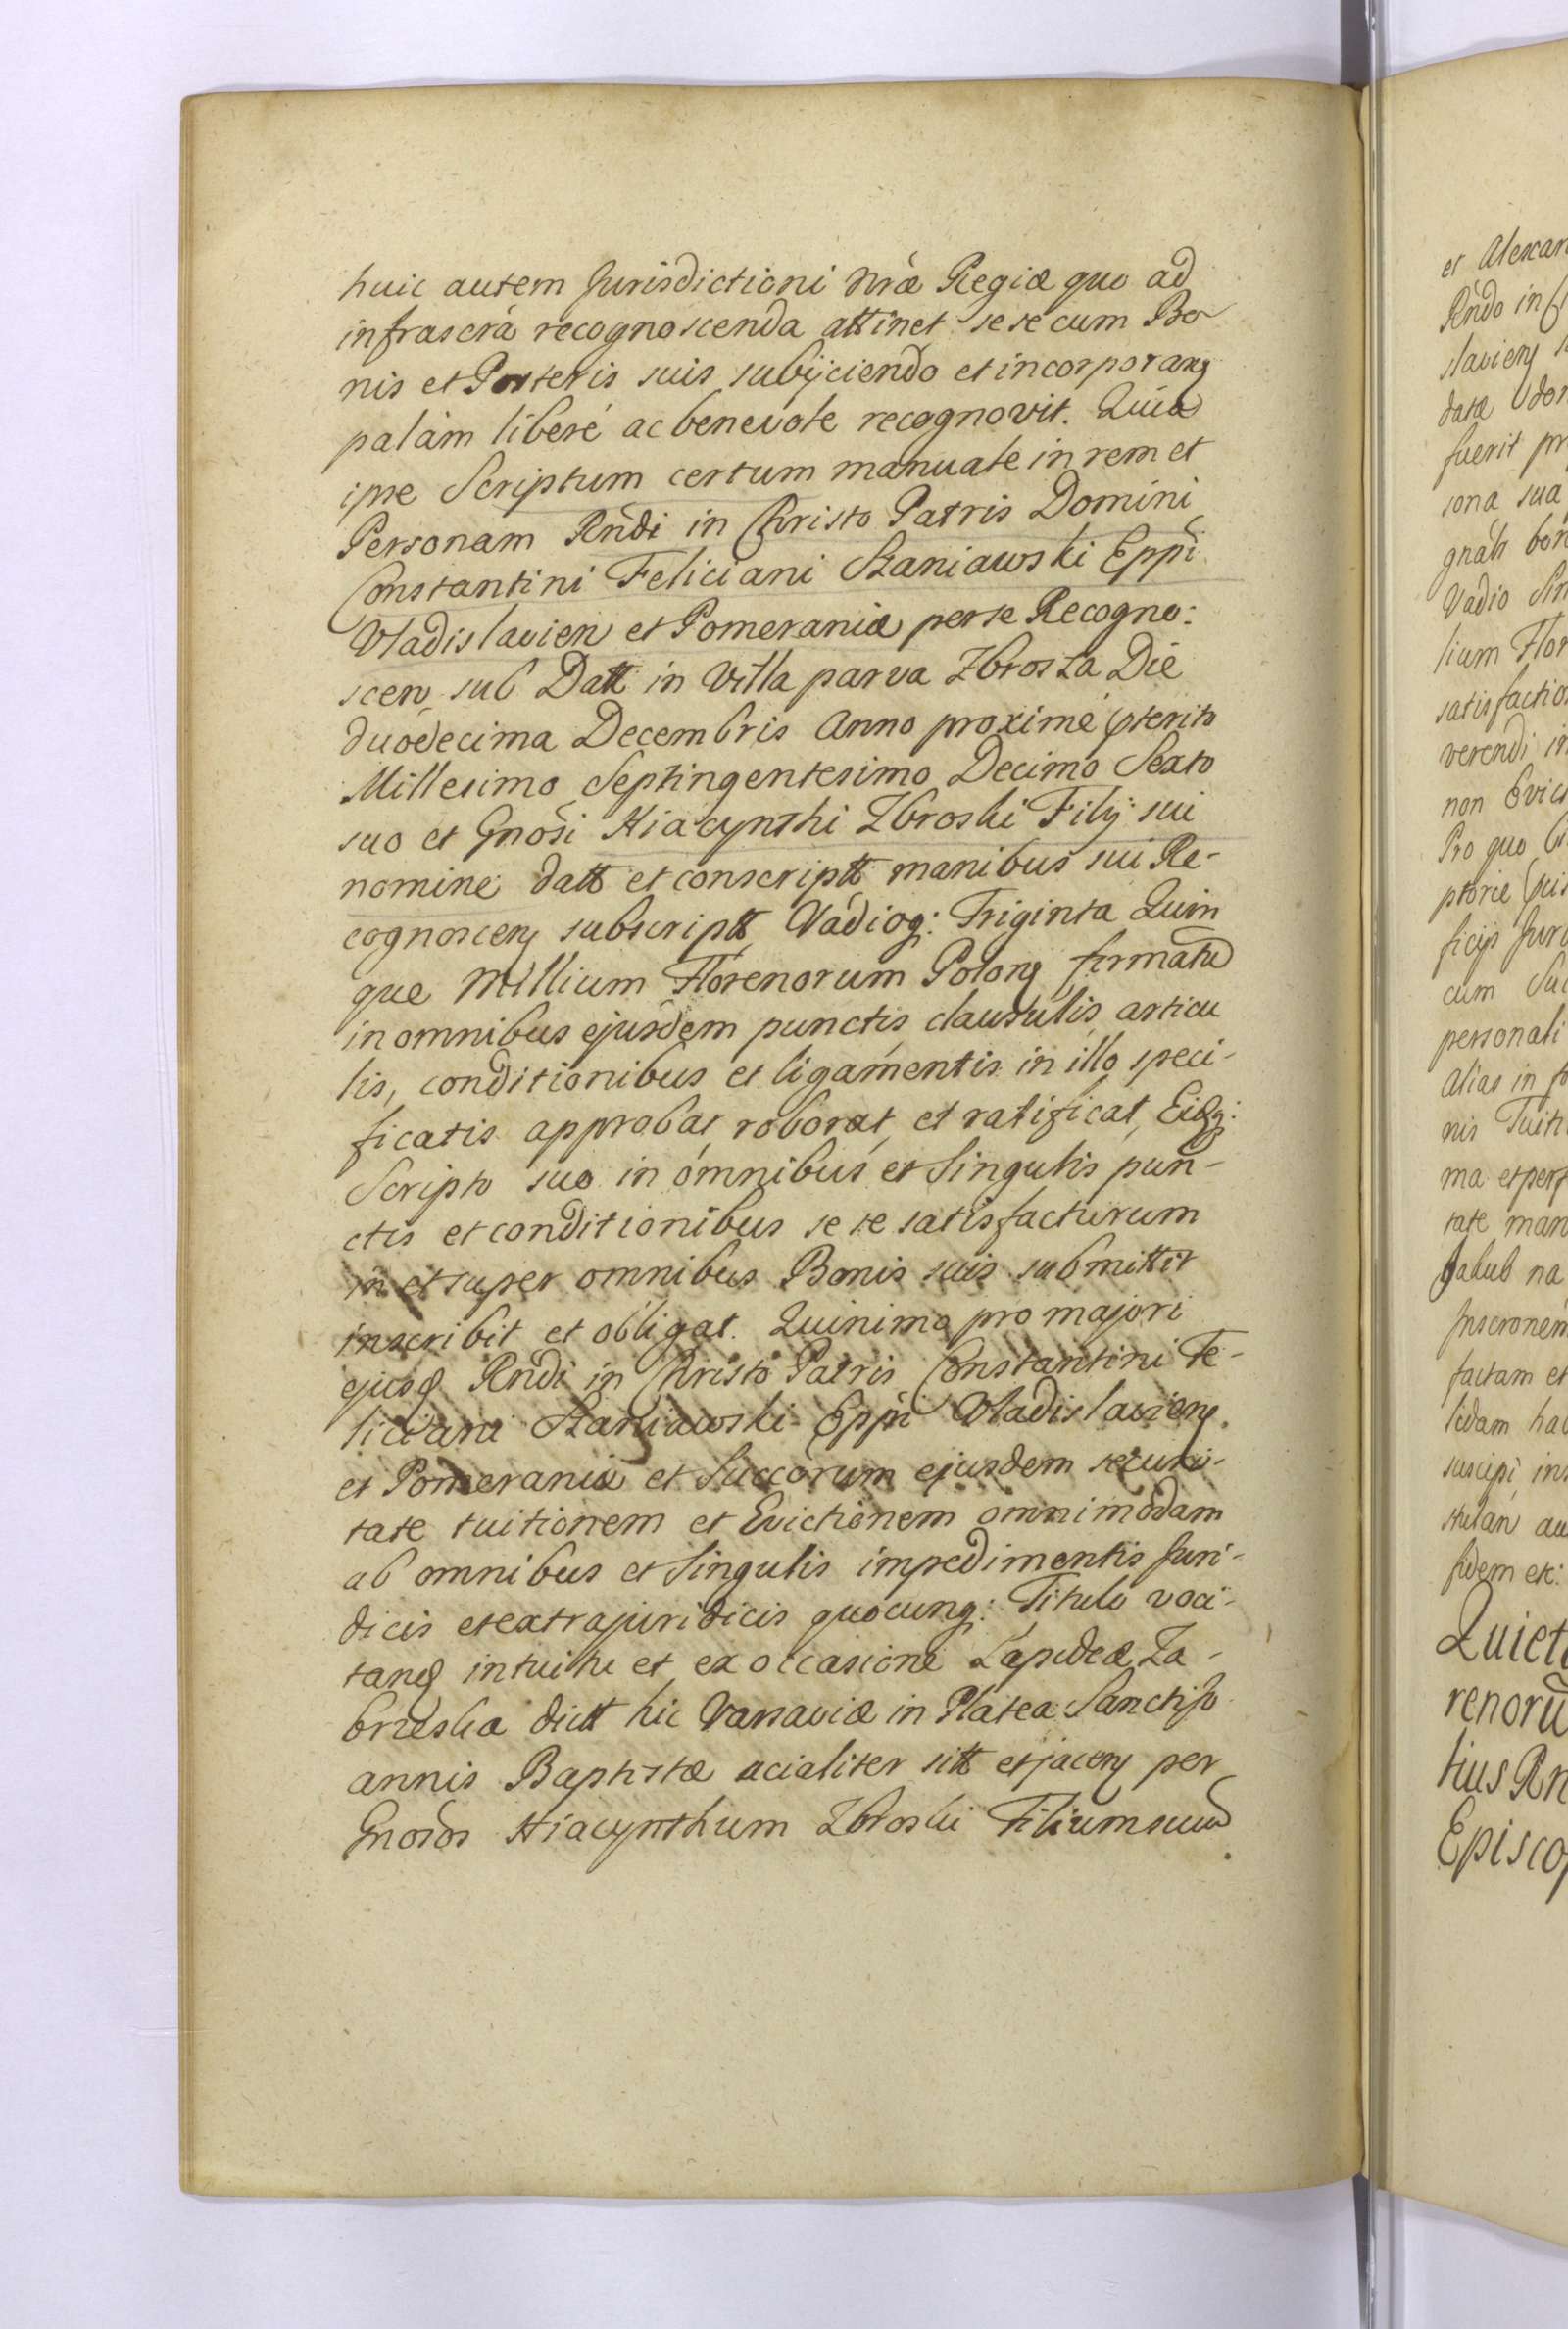 huic autem Jurisdictioni nrae Regiae quo ad
infrascrã recognoscenda attinet se se cum Bo
nis et Posteris suis subijciendo et incorporan
palàm liberé ac benevole recognovit. Quia
ipse Scriptum certum manuale in rem et
Personam Rndi in Christo Patris Domini
Constantini Feliciani Szaniawski Eppi
Vladislavien et Pomeraniae per se Recogno:
scen sub Datt in Villa parva Zbroszà Die
duodecima Decembris Anno proximé pterito
Millesimo Septingentesimo Decimo Sexto
suo et Gnosi Hiacynthi Zbroski Filij sui
nomine datt et conscriptt manibus sui Re-
cognoscen subscriptt Vadioq: Triginta Quin
que Millium Florenorum Polon firmatu
in omnibus ejusdem punctis clausulis articu
lis, conditionibus et ligamentis in illo speci-
ficatis approbat roborat et ratificat, Eidq:
Scripto suo in omnibus et Singulis pun-
ctis et conditionibus se se satisfacturum
in et super omnibus Bonis suis submittit
inscribit et obligat. Quinimo pro majori
ejusd Rndi in Christo Patris Constantini Fe-
liciani Szaniawski Eppi Vladislavien
et Pomeraniae et Succorum ejusdem securi-
tate tuitionem et Evictionem omnimodam
ab omnibus et Singulis impedimentis Juri-
dicis et extrajuridicis quocunq: Titulo voci-
tand intuitu et ex occasione Lapideae Za-
brzeska dictt hic Varsaviae in Platea Sancti Jo
annis Baptistae acialiter sitt et jacen per
Gnosos Hiacynthum Zbroski Filium suum
et Alexan
Rndo in C
slavien
datae
fuerit pr
sona sua
gnáls bon
Vadio Sim
lium Flor
satisfactio
verendi in
non Evict
Pro quo
ptorie
ficijs Juri
cum
personali
alias in fo
nis Tuiti
ma et perp
tate man
Jakub na
Inscronem
factam et
lidam hab
suscipi, ins
stulan au
fidem etc:
Quiet
renoru
tius Rn
Episcop